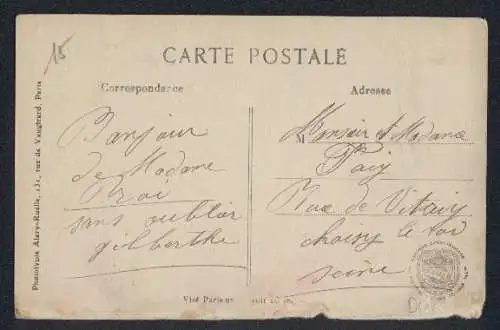 15
CARTE POSTALE
Correspondance
Adresse
Bonjour
de Madame
Roi
sans oublier
gilberthe
M Monsieur et Madame
Rue de Vitry
choisy le roi
seine
Phototypie Alary-Ruelle, 131, rue de Vaugirard, Paris
Visé Paris